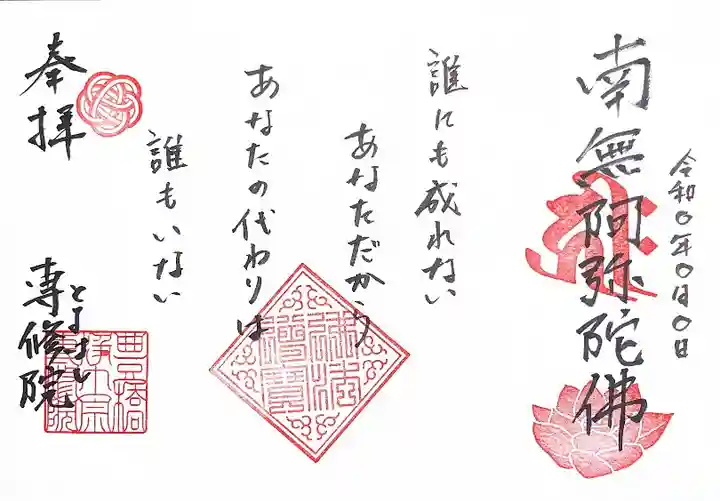 令和〇年〇月〇日
南無阿弥陀佛
誰にも成れない
あなただから
あなたの代わりは
誰もいない
奉拝
とよはし
専修院
佛法僧寶
豊橋
浄土宗
専修院